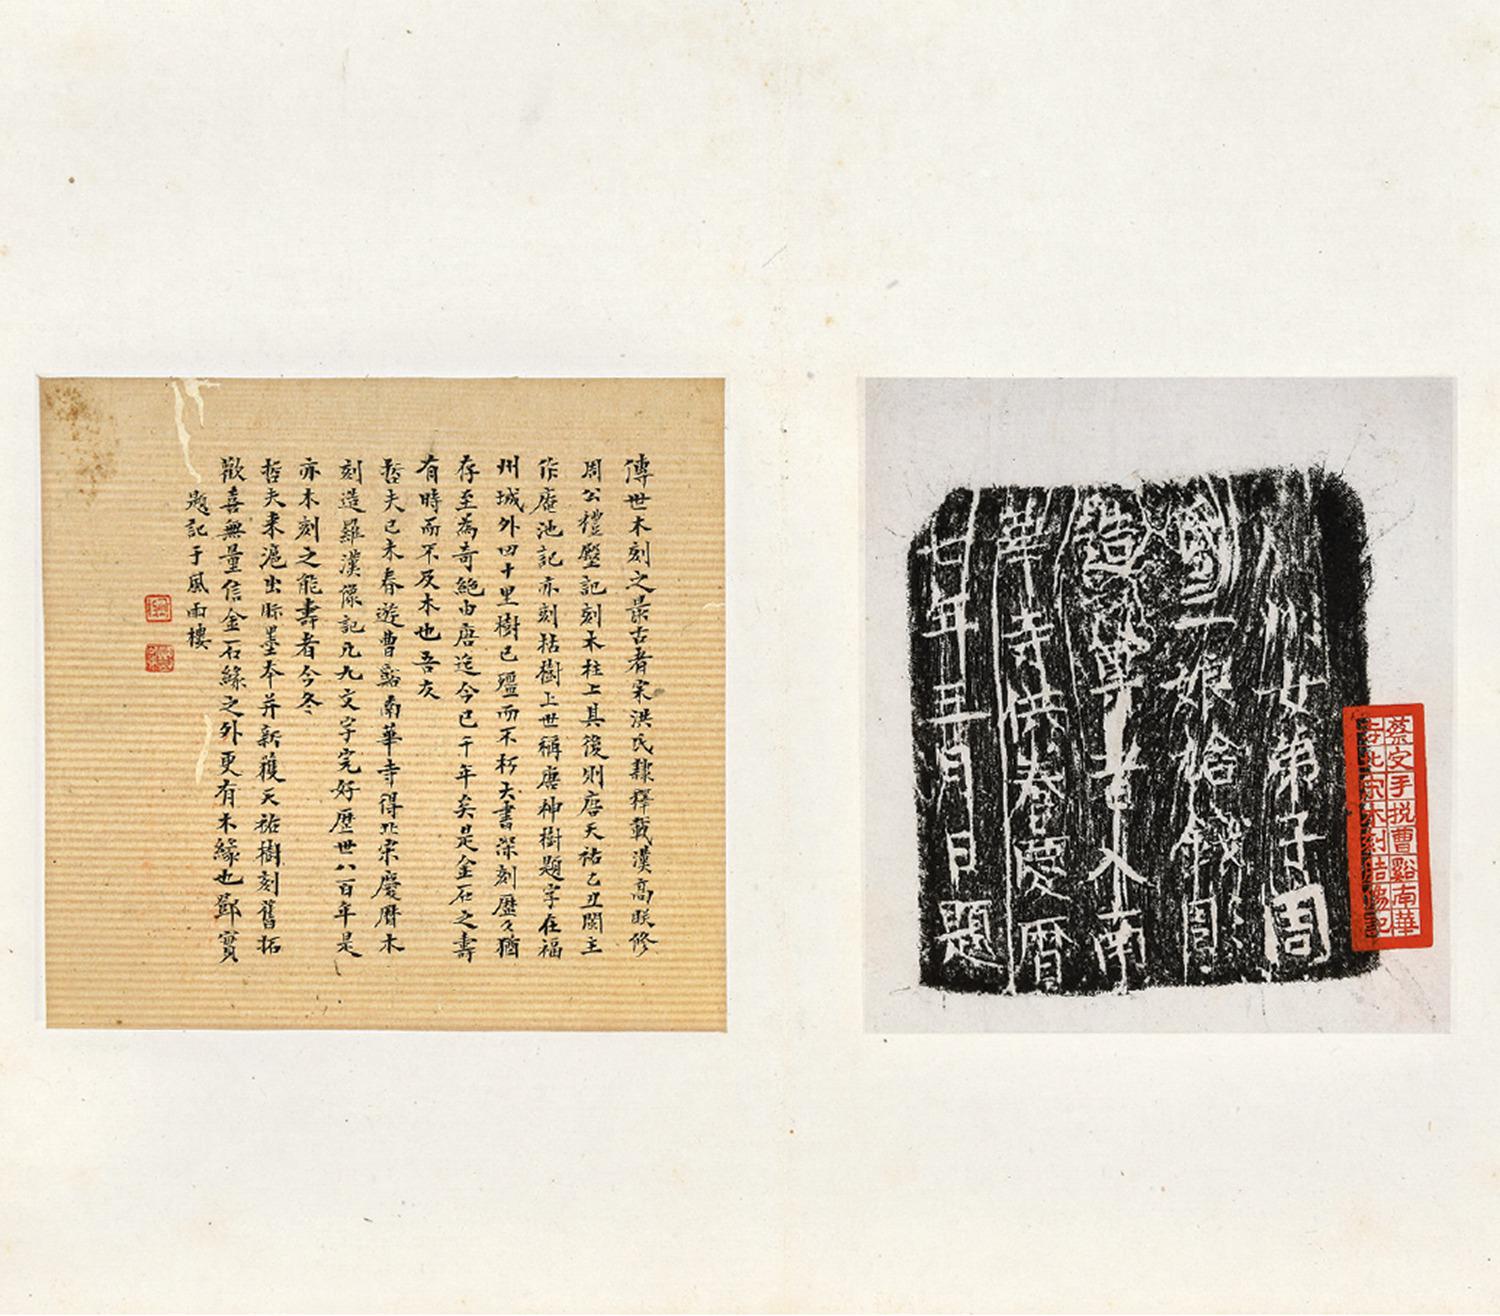 女弟子周
二娘捨錢
造尊者入南
華寺供養慶曆
七年三月日題
蔡守手拓曹谿南華
寺北宋木刻造像記
傳世木刻之最古者宋洪氏隸釋載漢高眹修
周公禮殿記刻木柱上其後則唐天祐乙丑閩主
作庵池記亦刻枯樹上世稱唐神樹題字在福
州城外四十里樹已殭而不朽大書深刻歷々猶
存至為奇絕由唐迄今已千年矣是金石之壽
有時而不及木也吾友
哲夫己未春遊曹谿南華寺得北宋慶曆木
刻造羅漢像記凡九文字完好歷世八百年是
亦木刻之能壽者今冬
哲夫來滬出眎墨本并新獲天祐樹刻舊拓
歡喜無量信金石緣之外更有木緣也鄧實
題記于風雨樓